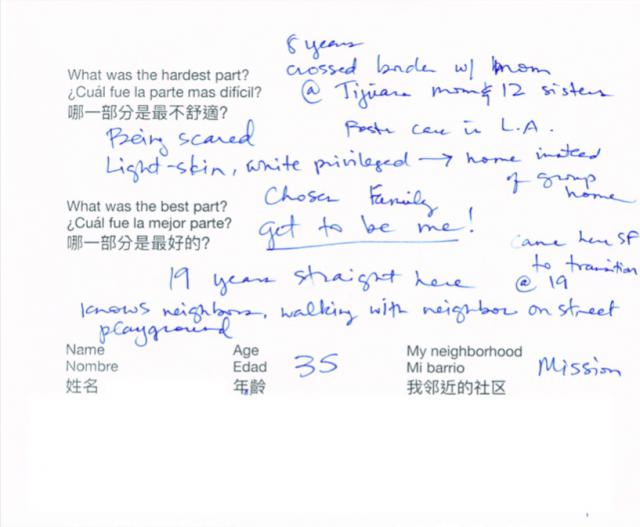 8 years
crossed border w/ mom
What was the hardest part?
¿Cuál fue la parte mas difícil?
@ Tijuana mom & 12 sisters
哪一部分是最不舒適?
Being scared
Foster care in L.A.
Light-skin, white privileged → home instead
of group
home
Chosen Family
What was the best part?
¿Cuál fue la mejor parte?
get to be me!
哪一部分是最好的?
came here SF
to transition
@ 19
19 years straight here
knows neighbors, walking with neighbor on street
playground
Name Age My neighborhood
Nombre Edad 35 Mi barrio Mission
姓名 年齡 我邻近的社区